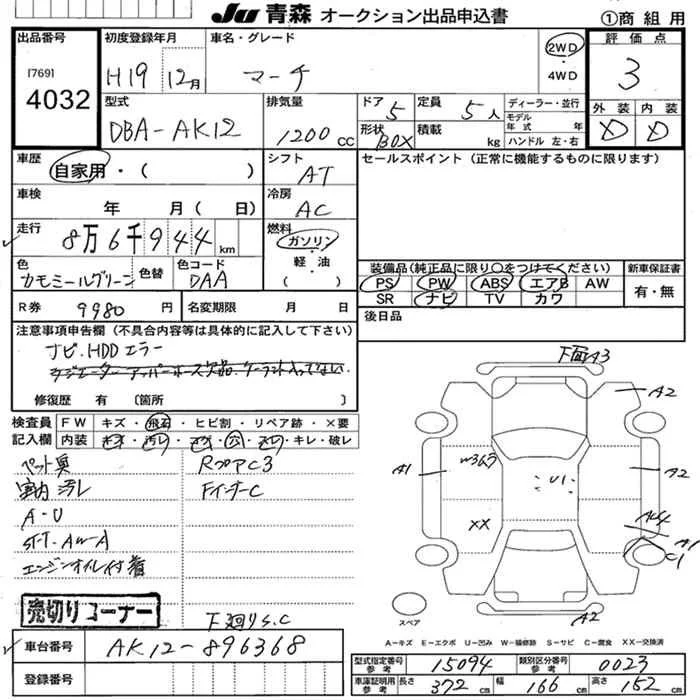 JU 青森 オークション出品申込書
①商 組 用
出品番号
[769]
4032
初度登録年月
H19 12月
車名・グレード
マーチ
2WD
・
4WD
評価点
3
外装 内装
D D
型式
DBA-AK12
排気量
1200 CC
ドア 5
形状 BOX
定員 5人
積載 kg
ディーラー・並行
モデル年式 年式
ハンドル 左・右
車歴
自家用・( )
シフト
AT
セールスポイント (正常に機能するものに限ります)
車検
年 月 ( 日)
冷房
AC
走行
8万6千944 km
燃料
ガソリン
・
軽・油
( )
色
カモミールグリーン
色替
色コード
DAA
装備品(純正品に限り○をつけてください)
PS PW ABS エアB AW
SR ナビ TV カワ
新車保証書
有・無
R券 9980 円
名変期限 月 日
後日品
注意事項申告欄 (不具合内容等は具体的に記入して下さい)
ナビ.HDDエラー
ラジエーターアッパーホース欠品.クーラント入ってない.
修復歴 有 〔箇所 〕
検査員記入欄
FW キズ・飛石・ヒビ割・リペア跡・×要
内装 キズ・汚レ・コゲ・穴・スレ・キレ・破レ
ペット臭
室内汚レ
A・U
ST-T.AW-A
エンジンオイル付着
RコアC3
FインナーC
下廻りS.C
売切りコーナー
下面A3
A2
A1
W3
U1
A2
XX
A1
C1
A2
スペア
A=キズ E=エクボ U=凹み W=補修跡 S=サビ C=腐食 XX=交換済
車台番号
AK12-896368
登録番号
型式指定番号 参考 15094
類別区分番号 参考 0023
車庫証明用 参考 長さ 372 cm 幅 166 cm 高さ 152 cm